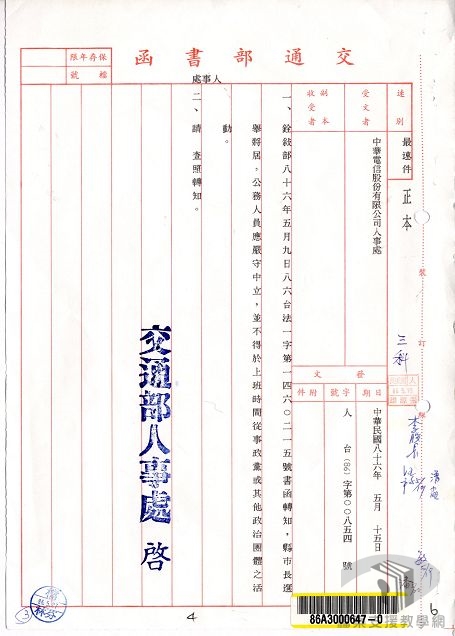 交通部書函
人事處
保存年限
檔號
速別
最速件
正本
受文者
中華電信股份有限公司人事處
副本
收受者
發文
日期
中華民國八十六年 五月 十五日
字號
人 台(86)字第〇〇八五四 號
附件
裝
訂
一、銓敘部八十六年五月九日八六台法一字第一四六〇二一五號書函轉知,縣市長選
舉將屆,公務人員應嚴守中立,並不得於上班時間從事政黨或其他政治團體之活
動。
二、請 查照轉知。
交通部人事處 啓
三科
86A3000647-0
4
6